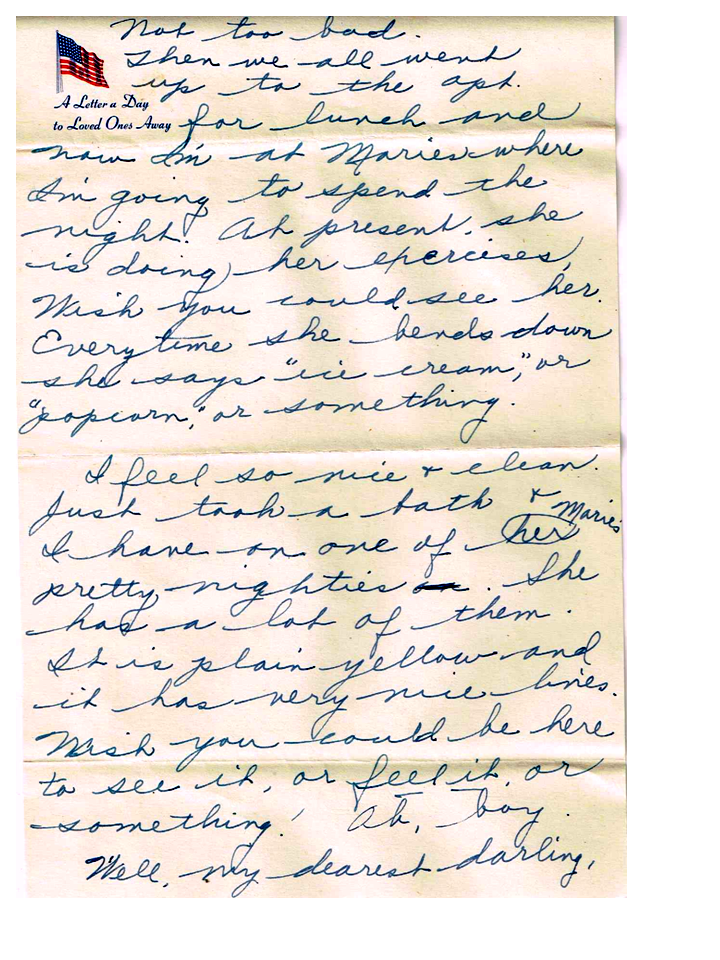 Not too bad.
Then we all went
up to the apt.
A Letter a Day
to Loved Ones Away
for lunch and
now I'm at Maries where
I'm going to spend the
night. At present, she
is doing her exercises,
Wish you could see her.
Everytime she bends down
she says "ice cream," or
"popcorn," or something.
I feel so nice & clean.
Just took a bath &
Maries
I have on one of her
pretty nighties. She
has a lot of them.
It is plain yellow and
it has very nice lines.
Wish you could be here
to see it, or feel it, or
something! Ah, boy.
Well, my dearest darling,